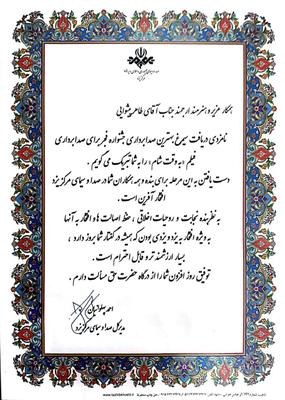 همکار عزیز و هنرمند ارجمند جناب آقای طاهر پیشوایی
نامزدی دریافت سیمرغ بهترین صدابرداری جشنواره فجر برای صدابرداری
فیلم «به وقت شام» را به شما تبریک می گویم .
دست یافتن به این مرحله برای بنده و همه همکاران شما در صدا و سیمای مرکز یزد
افتخار آفرین است .
به نظر بنده نجابت و روحیات اخلاقی ، حفظ اصالت ها و افتخار به آنها
به ویژه افتخار به یزد و یزدی بودن که همیشه در گفتار شما بروز دارد ،
بسیار ارزشمند تر و قابل احترام است .
توفیق روز افزون شما را از درگاه حضرت حق مسألت دارم .
احمد پهلوانیان
مدیرکل صدا و سیمای مرکز یزد